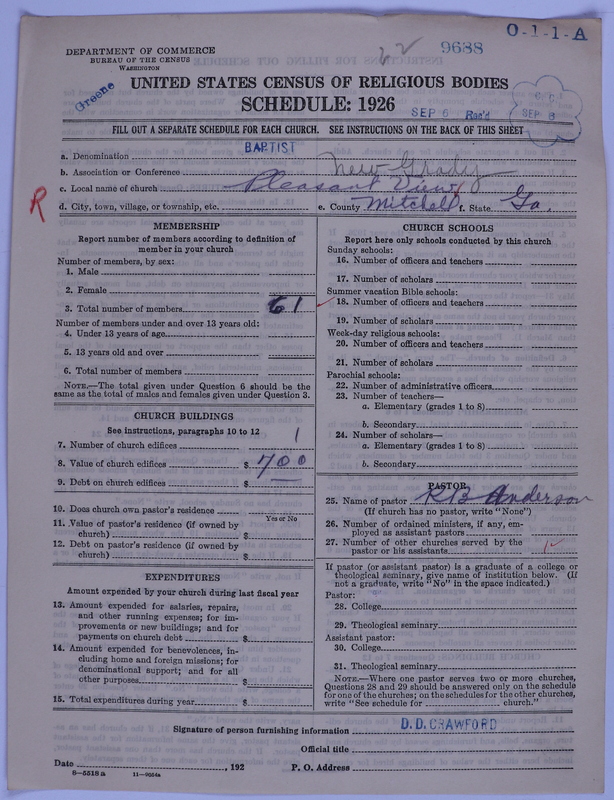 O-1-1-A
9688
DEPARTMENT OF COMMERCE
BUREAU OF THE CENSUS
WASHINGTON
Greene
UNITED STATES CENSUS OF RELIGIOUS BODIES
SCHEDULE: 1926
SEP 6 Rec'd
SEP 8
FILL OUT A SEPARATE SCHEDULE FOR EACH CHURCH. SEE INSTRUCTIONS ON THE BACK OF THIS SHEET
a. Denomination BAPTIST
b. Association or Conference New Grady
c. Local name of church Pleasant View
R
d. City, town, village, or township, etc. e. County Mitchell f. State Ga.
MEMBERSHIP
Report number of members according to definition of
member in your church
Number of members, by sex:
1. Male
2. Female
3. Total number of members 61
Number of members under and over 13 years old:
4. Under 13 years of age
5. 13 years old and over
6. Total number of members
NOTE.—The total given under Question 6 should be
same as the total of males and females given under Question 3.
CHURCH BUILDINGS
See instructions, paragraphs 10 to 12
7. Number of church edifices 1
8. Value of church edifices $ 700
9. Debt on church edifices $
10. Does church own pastor's residence
Yes or No
11. Value of pastor's residence (if owned by
church) $
12. Debt on pastor's residence (if owned by
church) $
EXPENDITURES
Amount expended by your church during last fiscal year
13. Amount expended for salaries, repairs,
and other running expenses; for im-
provements or new buildings; and for
payments on church debt $
14. Amount expended for benevolences, in-
cluding home and foreign missions; for
denominational support; and for all
other purposes $
15. Total expenditures during year $
CHURCH SCHOOLS
Report here only schools conducted by this church
Sunday schools:
16. Number of officers and teachers
17. Number of scholars
Summer vacation Bible schools:
18. Number of officers and teachers
19. Number of scholars
Week-day religious schools:
20. Number of officers and teachers
21. Number of scholars
Parochial schools:
22. Number of administrative officers
23. Number of teachers—
a. Elementary (grades 1 to 8)
b. Secondary
24. Number of scholars—
a. Elementary (grades 1 to 8)
b. Secondary
PASTOR
25. Name of pastor R B Anderson
(If church has no pastor, write "None")
26. Number of ordained ministers, if any, em-
ployed as assistant pastors
27. Number of other churches served by the
pastor or his assistants
If pastor (or assistant pastor) is a graduate of a college or
theological seminary, give name of institution below. (If
not a graduate, write "No" in the space indicated.)
Pastor:
28. College
29. Theological seminary
Assistant pastor:
30. College
31. Theological seminary
NOTE.—Where one pastor serves two or more churches,
Questions 28 and 29 should be answered only on the schedule
for one of the churches; on the schedules for the other churches,
write "See schedule for church."
Signature of person furnishing information D. D. CRAWFORD
Official title
Date , 192 P. O. Address
8-5518 a 11-9654a